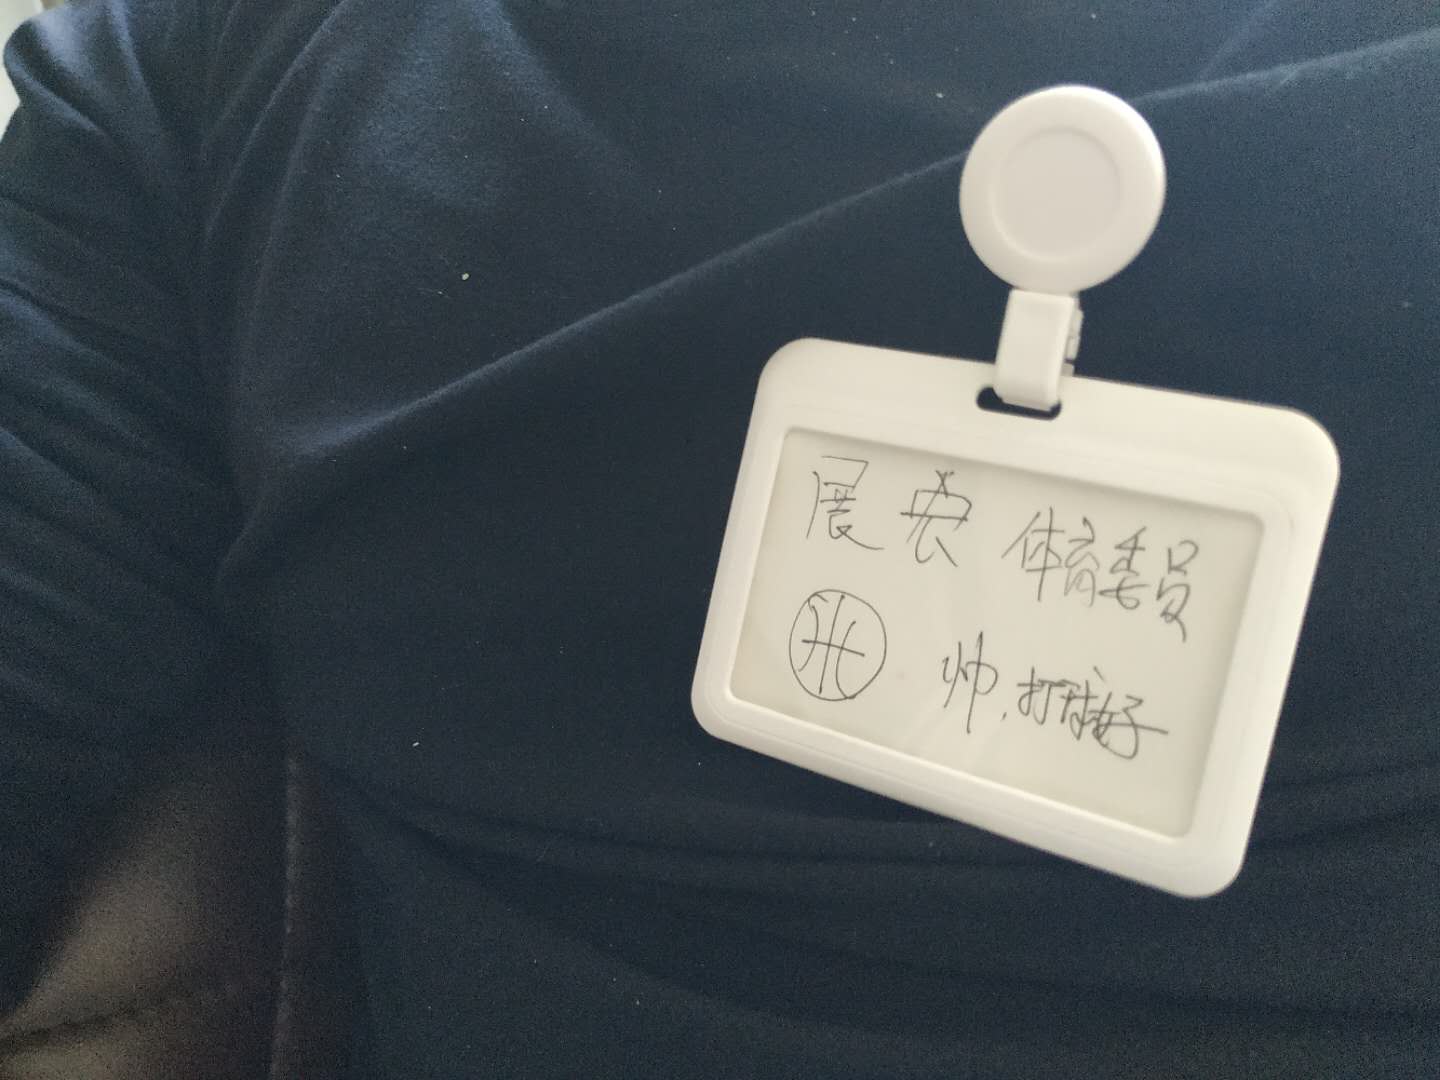 展宏 体育委员
帅,打球好